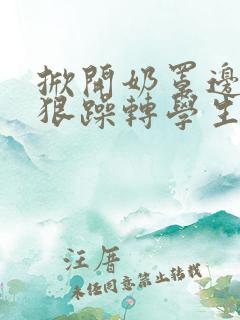 掀開奶罩邊
狠躁轉學生
汪厝
未经同意禁止转载